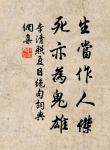 生當作人傑
死亦為鬼雄
李清照夏日絕句詞典
網集